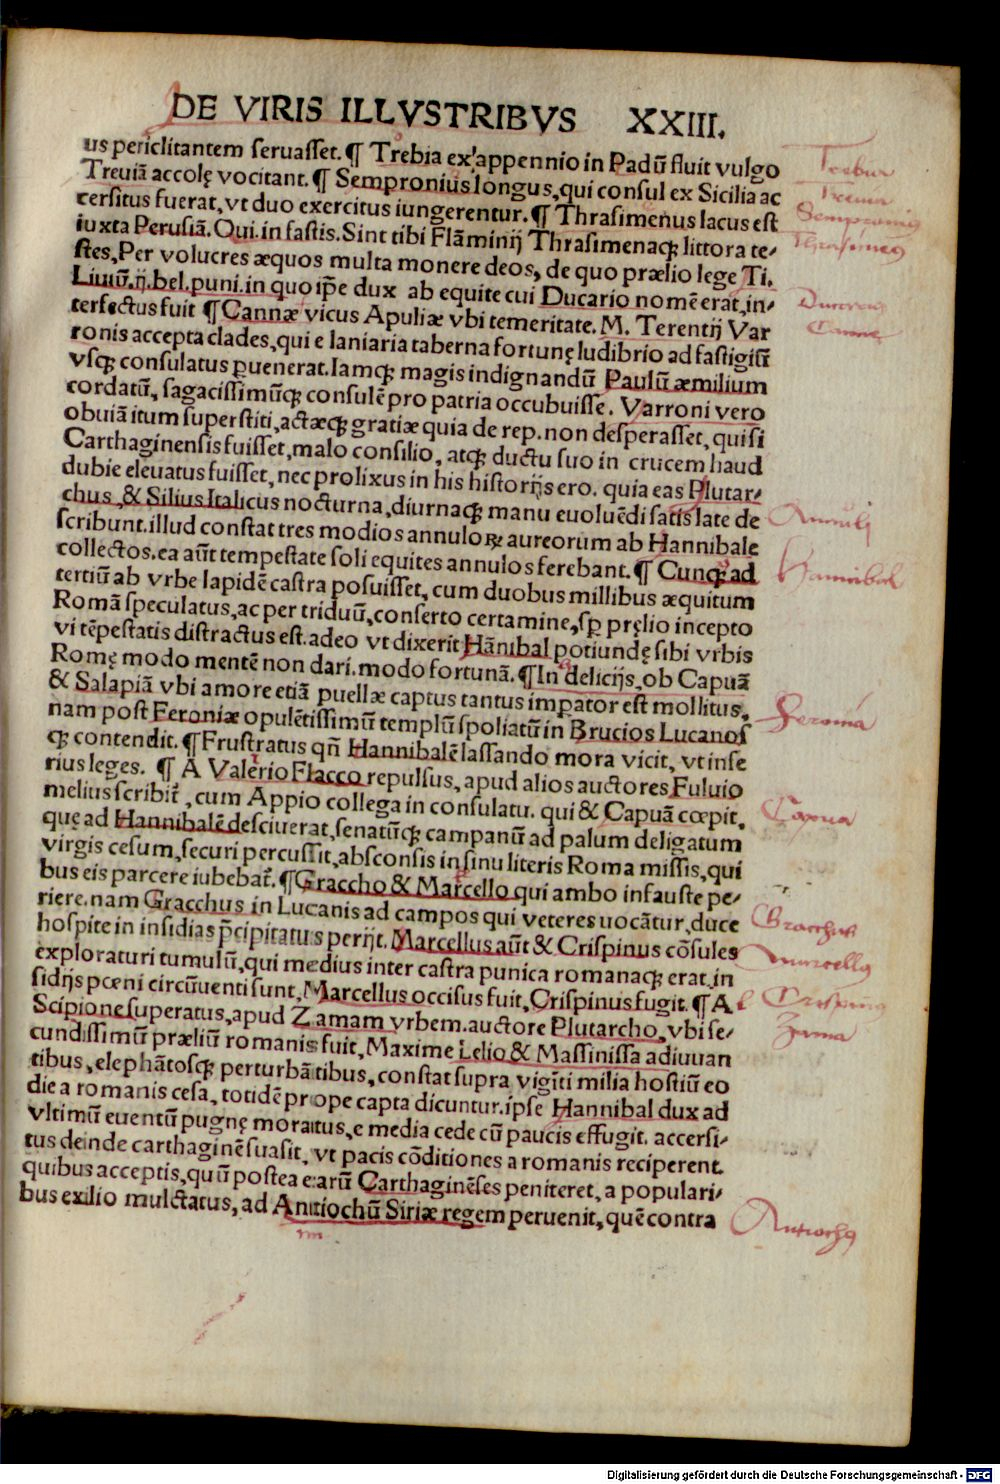 DE VIRIS ILLVSTRIBVS XXIII.
us periclitantem seruasset. ¶ Trebia ex appennio in Padũ fluit vulgo
Treuiã accolę vocitant. ¶ Sempronius longus, qui consul ex Sicilia ac
cersitus fuerat, vt duo exercitus iungerentur. ¶ Thrasimenus lacus est
iuxta Perusiã. Qui. in fastis. Sint tibi Flãminij Thrasimenaqȝ littora te⸗
stes, Per volucres æquos multa monere deos, de quo prælio lege Ti.
Liuiũ. ij. bel. puni. in quo ip̃e dux ab equite cui Ducario nomẽ erat, in⸗
terfectus fuit ¶ Cannæ vicus Apuliæ vbi temeritate. M. Terentij Var
ronis accepta clades, qui e laniaria taberna fortunę ludibrio ad fastigiũ
vsqȝ consulatus ꝑuenerat. Iamqȝ magis indignandũ Paulũ æmilium
cordatũ, sagacissimũqȝ consulẽ pro patria occubuisse. Varroni vero
obuiã itum superstiti, actæqȝ gratiæ quia de rep. non desperasset, qui si
Carthaginensis fuisset, malo consilio, atqȝ ductu suo in crucem haud
dubie eleuatus fuisset, nec prolixus in his historijs ero. quia eas Plutar⸗
chus, & Silius Italicus nocturna, diurnaqȝ manu euoluẽdi satis late de
scribunt. illud constat tres modios annuloꝝ aureorum ab Hannibale
collectos. ea aũt tempestate soli equites annulos ferebant. ¶ Cunqȝ ad
tertiũ ab vrbe lapidẽ castra posuisset, cum duobus millibus æquitum
Romã speculatus, ac per triduũ, conserto certamine, sꝑ pręlio incepto
vi tẽpestatis distractus est. adeo vt dixerit Hãnibal potiundę sibi vrbis
Romę modo mentẽ non dari. modo fortunã. ¶ In delicijs, ob Capuã
& Salapiã vbi amore etiã puellæ captus tantus imꝑator est mollitus,
nam post Feroniæ opulẽtissimũ templũ spoliatũ in Brucios Lucanos
qȝ contendit. ¶ Frustratus qñ Hannibalẽ lassando mora vicit, vt infe
rius leges. ¶ A Valerio Flacco repulsus, apud alios auctores Fuluio
melius scribit̃, cum Appio collega in consulatu. qui & Capuã cœpit,
quę ad Hannibalẽ desciuerat, senatũqȝ campanũ ad palum deligatum
virgis cesum, securi percussit, absconsis in sinu literis Roma missis, qui
bus eis parcere iubebat̃. ¶ Graccho & Marcello qui ambo infauste pe⸗
riere. nam Gracchus in Lucanis ad campos qui veteres uocãtur, duce
hospite in insidias p̃cipitatus perijt. Marcellus aũt & Crispinus cõsules
exploraturi tumulũ, qui medius inter castra punica romanaqȝ erat, in
sidijs pœni circũuenti sunt, Marcellus occisus fuit, Crispinus fugit. ¶ A
Scipione superatus, apud Zamam vrbem. auctore Plutarcho, vbi se⸗
cundissimũ præliũ romanis fuit, Maxime Lelio & Massinissa adiuuan
tibus, elephãtosqȝ perturbãtibus, constat supra vigĩti milia hostiũ eo
die a romanis cesa, totidẽ prope capta dicuntur. ipse Hannibal dux ad
vltimũ euentũ pugnę moratus, e media cede cũ paucis effugit. accersi⸗
tus deinde carthaginẽ suasit, vt pacis cõditiones a romanis reciperent.
quibus acceptis, quũ postea earũ Carthaginẽses peniteret, a populari⸗
bus exilio mulctatus, ad Antiochũ Siriæ regem peruenit, quẽ contra
Trebia
Treuia
Sempronius
Thrasimenus
Ducarius
Canne
Annuli
Hannibal
Feronia
Capua
Gracchus
Marcellus
Crispinus
Zama
Antiochus
Digitalisierung gefördert durch die Deutsche Forschungsgemeinschaft - DFG